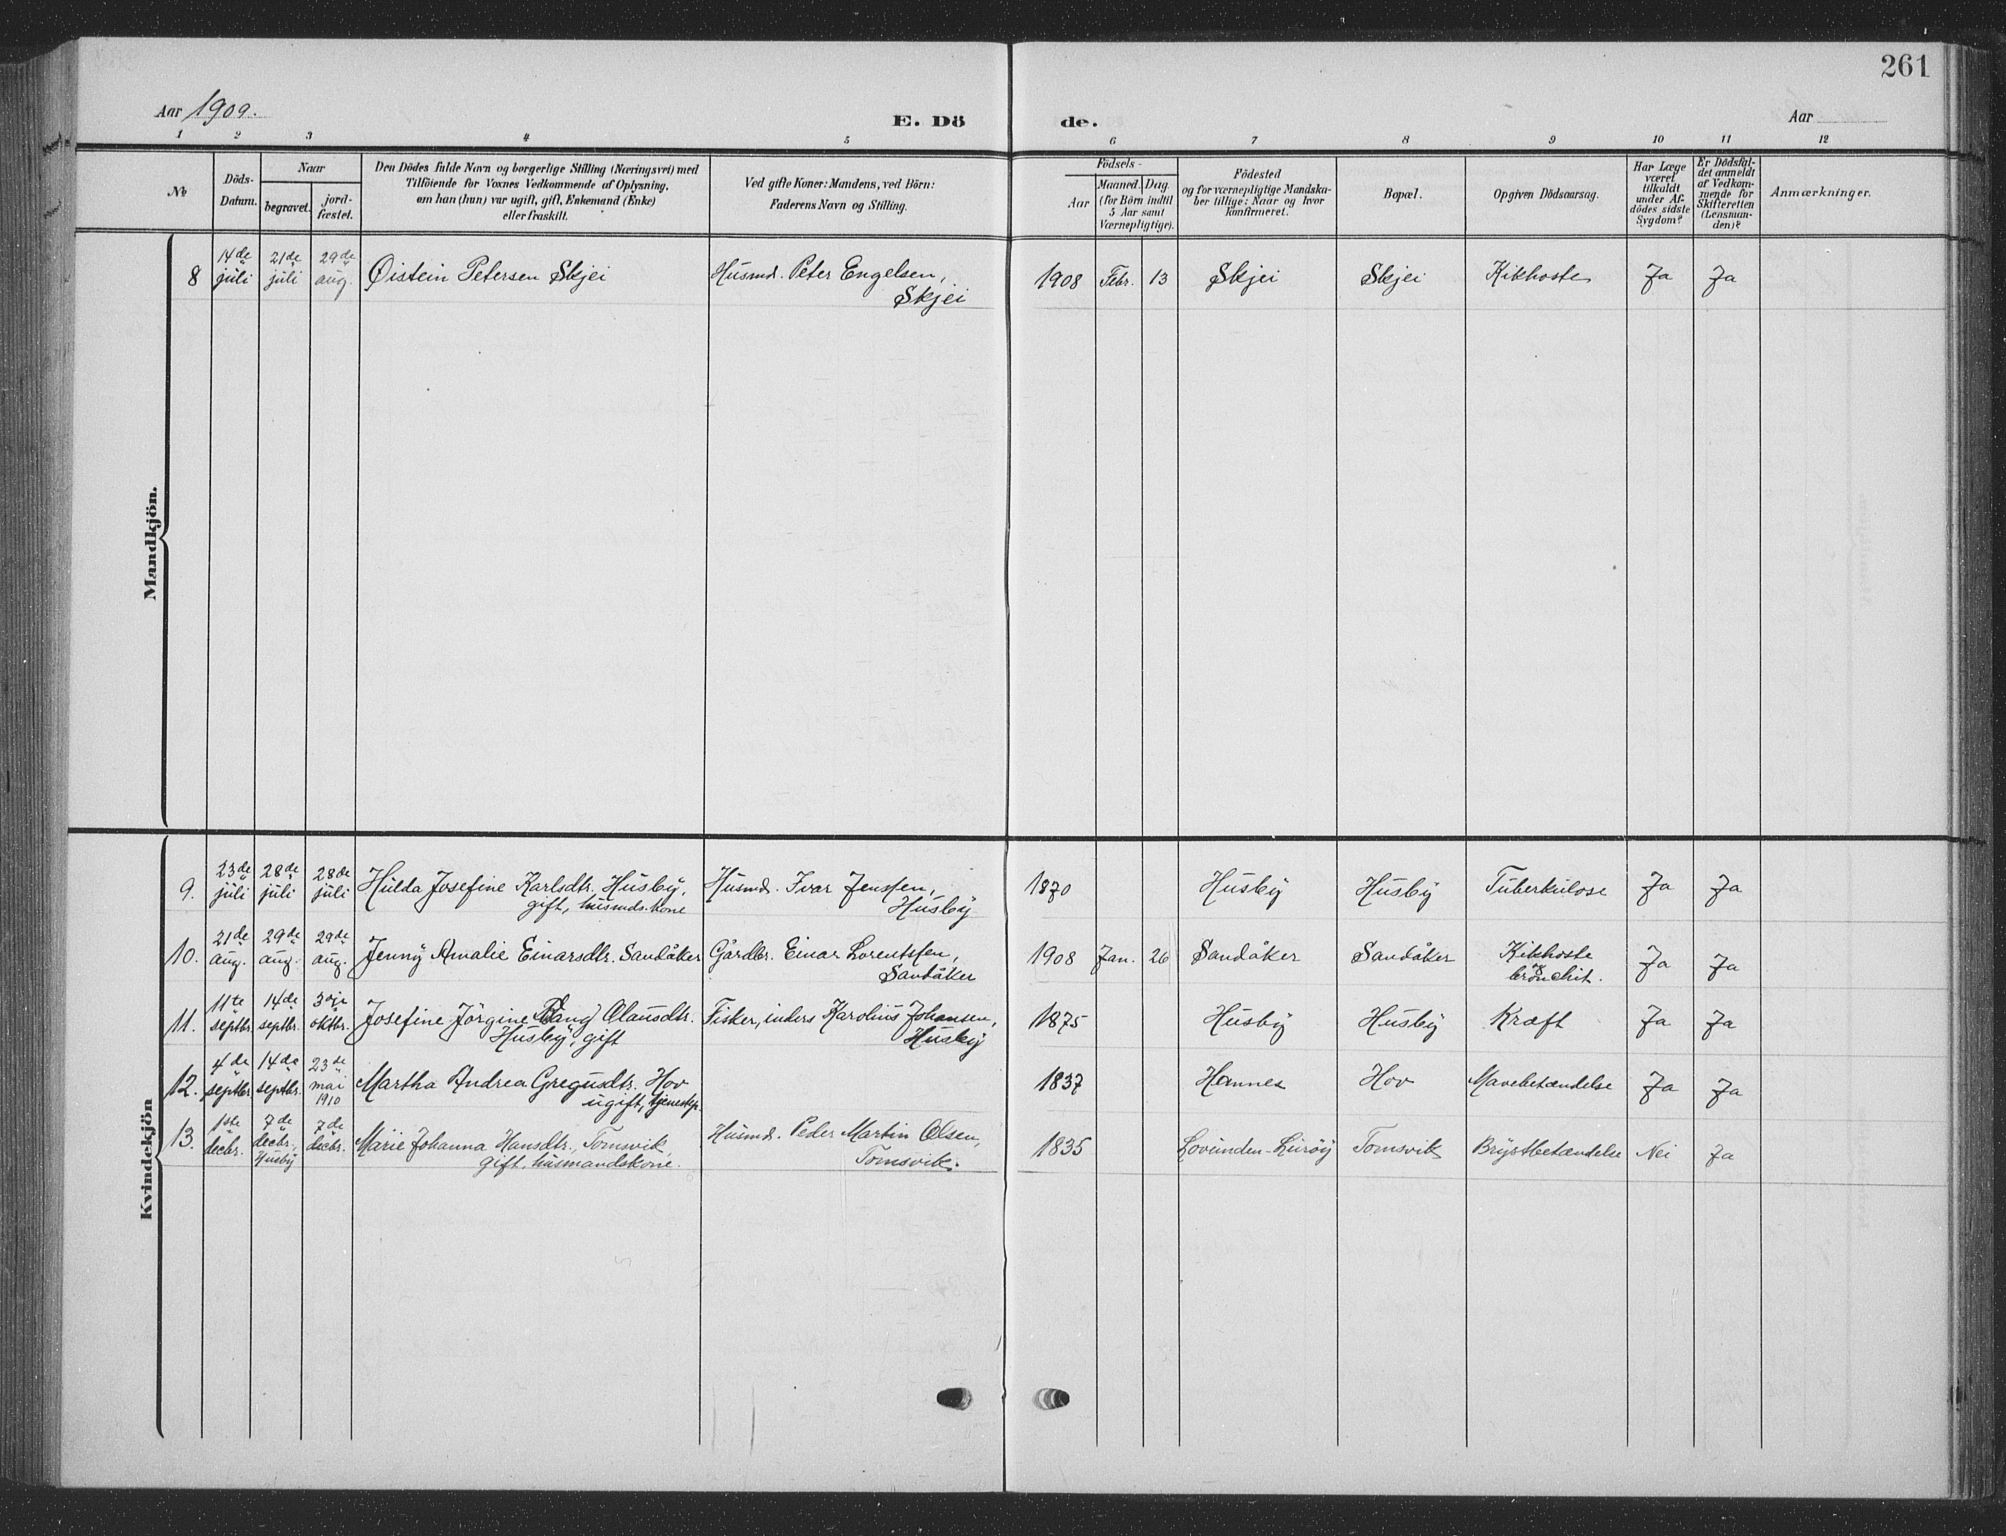 261
Aar 1909.
E. Dö de.
Aar
1 2 3 4 5 6 7 8 9 10 11 12
No
Döds-
Datum.
Naar
begravet.
jord-
fæstet.
Den Dödes fulde Navn og borgerlige Stilling (Næringsvei) med
Tilföiende for Voxnes Vedkommende af Oplysning,
om han (hun) var ugift, gift, Enkemand (Enke)
eller fraskilt.
Ved gifte Koner: Mandens, ved Börn:
Faderens Navn og Stilling.
Födsels-
Aar
Maaned. Dag.
(for Börn indtil
5 Aar samt
Værnepligtige).
Födested
og for værnepligtige Mandska-
ber tillige: Naar og hvor
konfirmeret.
Bopæl.
Opgiven Dödsaarsag.
Har Læge
været
tilkaldt
under Af-
dödes sidste
Sygdom?
Er Dödsfal-
det anmeldt
af Vedkom-
mende for
Skifteretten
(Lensman-
den)?
Anmærkninger.
Mandkjön.
8 14de juli 21de juli 29de aug. Øistein Petersen Skjei Husmd. Peter Engelsen, 1908 Febr. 13 Skjei Skjei Kikhoste Ja Ja
Skjei
Kvindekjön
9. 23de juli 28de juli 28de juli Hulda Josefine Karlsdtr. Husby, Husmd. Ivar Jenssen, 1870 Husby Husby Tuberkulose Ja Ja
gift, husmds.kone Husby
10. 21de aug. 29de aug. 29de aug. Jenny Amalie Einarsdtr. Sandåker Gårdbr. Einar Lorentsen, 1908 Jan. 26 Sandåker Sandåker Kikhoste Ja Ja
Sandåker og bronchit.
11. 11te septbr. 14de septbr. 3dje oktbr. Josefine Jörgine Olausdtr. Fisker, inders Karolius Johansen, 1875 Husby Husby Kræft Ja Ja
Husby, gift Husby
12. 4de septbr. 14de septbr. 23de mai 1910 Martha Andrea Gregusdtr. Hov 1837 Hov Mavebetændelse Ja Ja
ugift, tjenestep.
13. 1ste decbr. 7de decbr. Husby 7de decbr. Marie Johanna Hansdtr., Tomsvik, Husmd. Peder Martin Olsen, 1835 Lovunden-Lurøy Tomsvik Brystbetændelse Nei Ja
gift, husmandskone. Tomsvik.